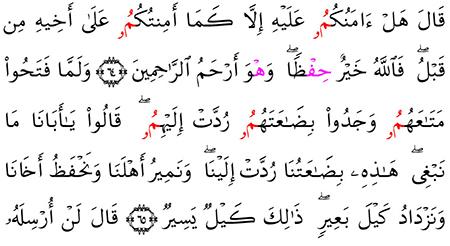 قَالَ هَلْ ءَامَنُكُمُۥ عَلَيْهِ إِلَّا كَمَا أَمِنتُكُمُۥ عَلَىٰ أَخِيهِ مِن
قَبْلُ ۖ فَاللَّهُ خَيْرٌ حِفْظًا ۖ وَهْوَ أَرْحَمُ الرَّٰحِمِينَ ٦٤ وَلَمَّا فَتَحُوا
مَتَٰعَهُمُۥ وَجَدُوا بِضَٰعَتَهُمُۥ رُدَّتْ إِلَيْهِمُۥ ۖ قَالُوا يَٰأَبَانَا مَا
نَبْغِي ۖ هَٰذِهِۦ بِضَٰعَتُنَا رُدَّتْ إِلَيْنَا ۖ وَنَمِيرُ أَهْلَنَا وَنَحْفَظُ أَخَانَا
وَنَزْدَادُ كَيْلَ بَعِيرٍ ۖ ذَٰلِكَ كَيْلٌ يَسِيرٌ ٦٥ قَالَ لَنْ أُرْسِلَهُۥ